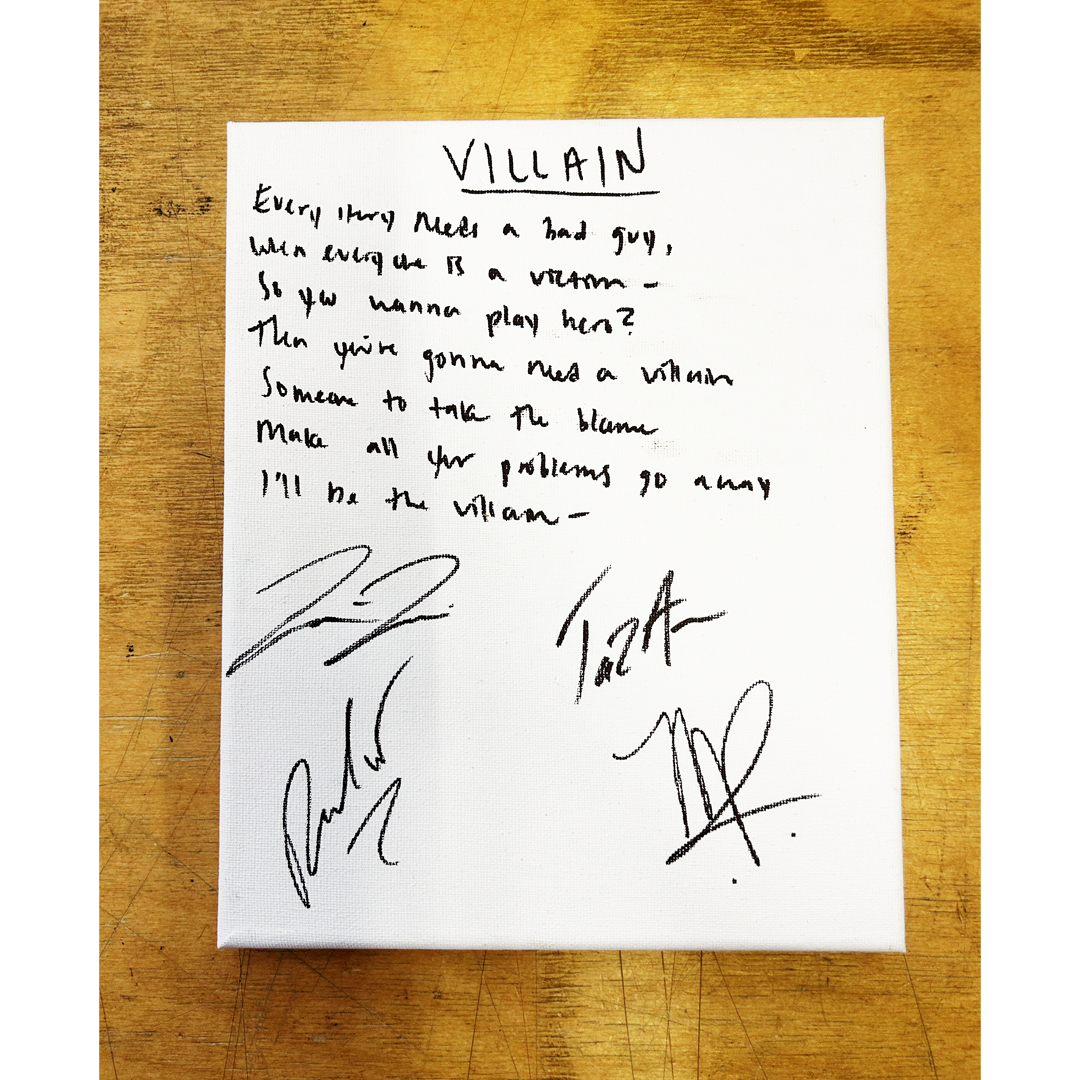 VILLAIN
Every story needs a bad guy,
when everyone is a victim –
So you wanna play hero?
Then you're gonna need a villain
Someone to take the blame
Make all your problems go away
I'll be the villain –